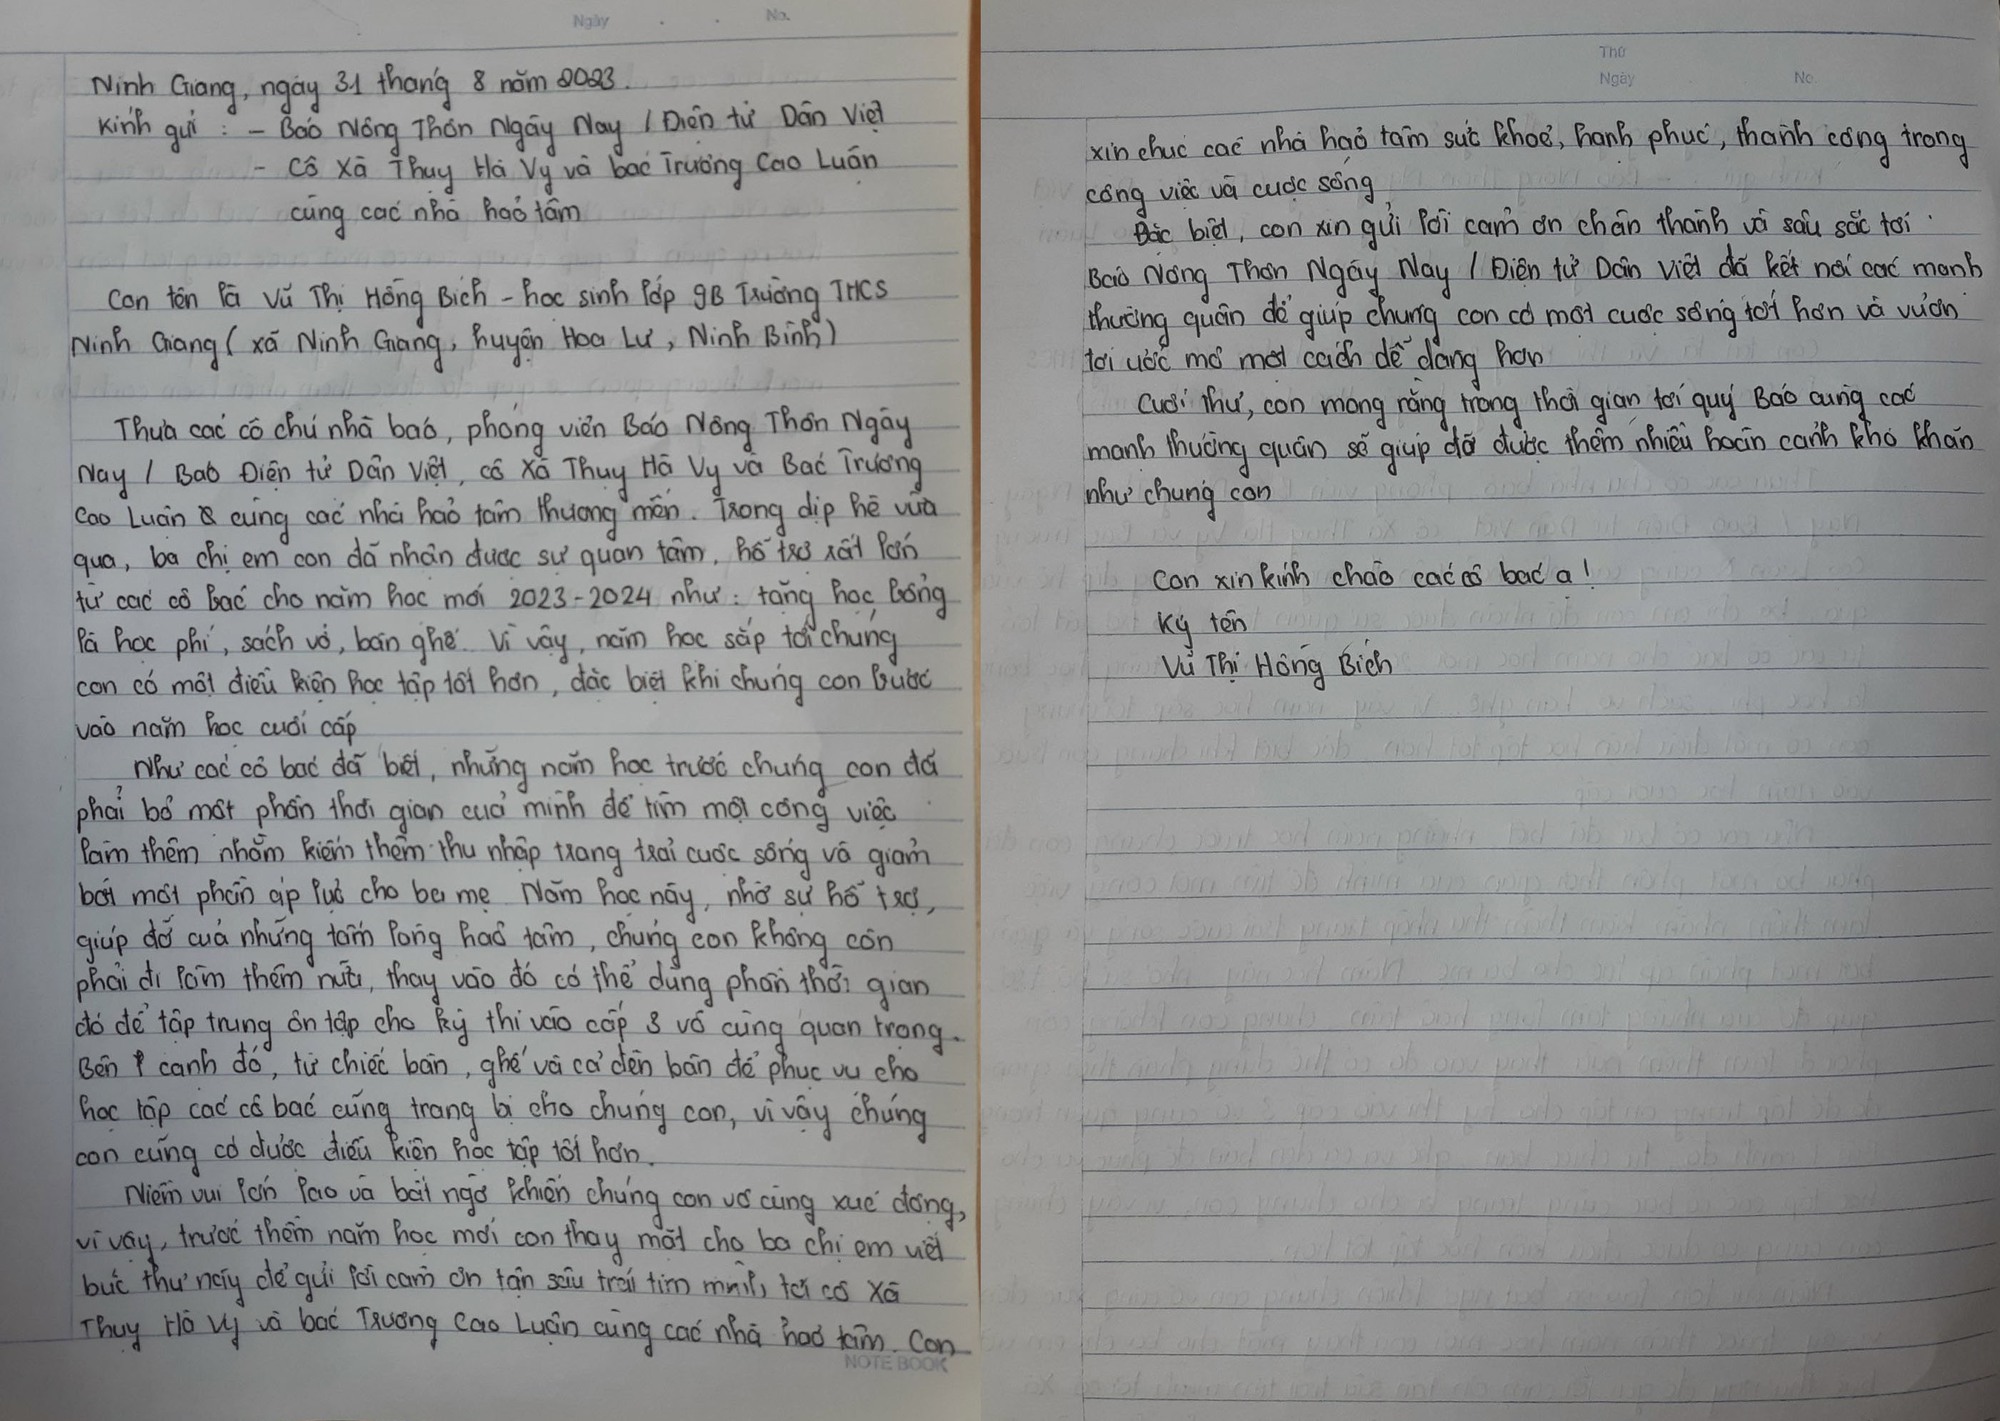 Ngày . . No.
Ninh Giang, ngày 31 tháng 8 năm 2023.
Kính gửi : - Báo Nông Thôn Ngày Nay / Điện tử Dân Việt
- Cô Xã Thuỵ Hà Vy và bác Trương Cao Luận
cùng các nhà hảo tâm
Con tên là Vũ Thị Hồng Bích - học sinh lớp 9B Trường THCS
Ninh Giang ( xã Ninh Giang, huyện Hoa Lư, Ninh Bình)
Thưa các cô chú nhà báo, phóng viên Báo Nông Thôn Ngày
Nay / Báo Điện tử Dân Việt, cô Xã Thuỵ Hà Vy và Bác Trương
Cao Luận & cùng các nhà hảo tâm thương mến. Trong dịp hè vừa
qua, ba chị em con đã nhận được sự quan tâm, hỗ trợ rất lớn
từ các cô bác cho năm học mới 2023-2024 như : tặng học bổng
là học phí, sách vở, bàn ghế. Vì vậy, năm học sắp tới chúng
con có một điều kiện học tập tốt hơn, đặc biệt khi chúng con bước
vào năm học cuối cấp
Như các cô bác đã biết, những năm học trước chúng con đã
phải bỏ một phần thời gian của mình để tìm một công việc
làm thêm nhằm kiếm thêm thu nhập trang trải cuộc sống và giảm
bớt một phần áp lực cho ba mẹ. Năm học này, nhờ sự hỗ trợ,
giúp đỡ của những tấm lòng hảo tâm, chúng con không còn
phải đi làm thêm nữa, thay vào đó có thể dùng phần thời gian
đó để tập trung ôn tập cho kỳ thi vào cấp 3 vô cùng quan trọng.
Bên cạnh đó, từ chiếc bàn, ghế và cả đèn bàn để phục vụ cho
học tập các cô bác cũng trang bị cho chúng con, vì vậy chúng
con cũng có được điều kiện học tập tốt hơn.
Niềm vui lớn lao và bất ngờ khiến chúng con vô cùng xúc động,
vì vậy, trước thềm năm học mới con thay mặt cho ba chị em viết
bức thư này để gửi lời cảm ơn tận sâu trái tim mình tới cô Xã
Thụy Hà Vy và bác Trương Cao Luận cùng các nhà hảo tâm. Con
NOTE BOOK
Thứ
Ngày No.
xin chúc các nhà hảo tâm sức khoẻ, hạnh phúc, thành công trong
công việc và cuộc sống
Đặc biệt, con xin gửi lời cảm ơn chân thành và sâu sắc tới
Báo Nông Thôn Ngày Nay / Điện tử Dân Việt đã kết nối các mạnh
thường quân để giúp chúng con có một cuộc sống tốt hơn và vươn
tới ước mơ một cách dễ dàng hơn
Cuối thư, con mong rằng trong thời gian tới quý Báo cùng các
mạnh thường quân sẽ giúp đỡ được thêm nhiều hoàn cảnh khó khăn
như chúng con
Con xin kính chào các cô bác ạ!
Ký tên
Vũ Thị Hồng Bích